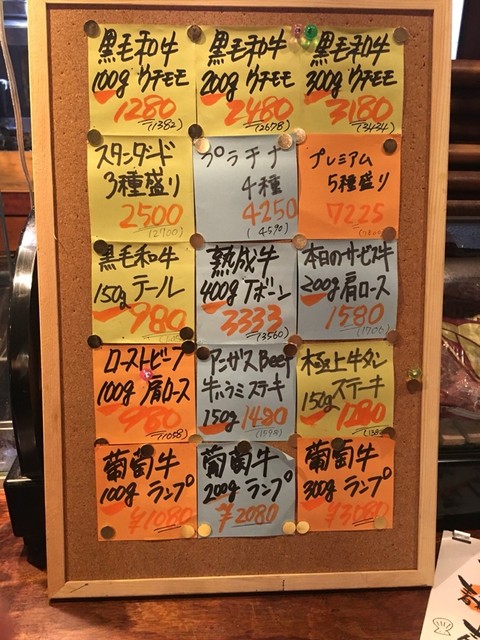 黒毛和牛
100g ウチモモ
1280
(1382)
黒毛和牛
200g ウチモモ
2480
(2678)
黒毛和牛
300g ウチモモ
3180
(3434)
スタンダード
3種盛り
2500
(2700)
プラチナ
4種
4250
(4590)
プレミアム
5種盛り
7225
黒毛和牛
150g テール
980
熟成牛
400g Tボーン
3333
(3560)
本日のサービス牛
200g 肩ロース
1580
(1706)
ローストビーフ
100g 肩ロース
980
(1058)
アンガスBeef
牛ハラミステーキ
150g 1480
(1598)
極上牛タン
ステーキ
150g 1280
葡萄牛
100g ランプ
¥1080
葡萄牛
200g ランプ
¥2080
葡萄牛
300g ランプ
¥3080